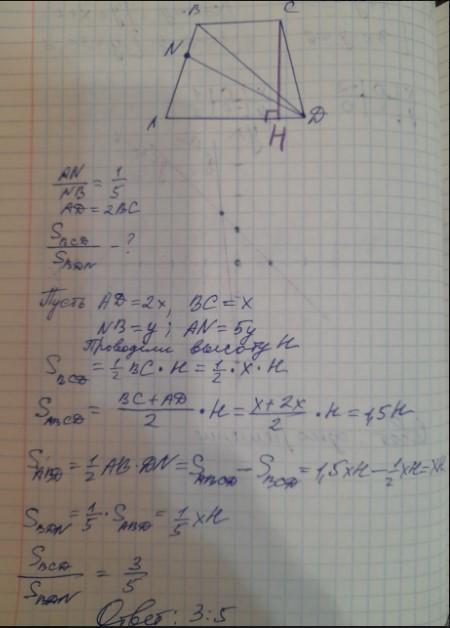 B C
N
A H D
AN/NB = 1/5
AD = 2BC
S_BCD/S_BDN - ?
Пусть AD = 2x, BC = x
NB = y; AN = 5y
Проводили высоту H
S_BCD = 1/2 BC · H = 1/2 · x · H
S_ABCD = BC + AD/2 · H = x + 2x/2 · H = 1,5H
S_ABD = 1/2 AB · DN = S_ABCD - S_BCD = 1,5xH - 1/2 xH = xH
S_BDN = 1/5 · S_ABD = 1/5 xH
S_BCD/S_BDN = 3/5
Ответ: 3:5